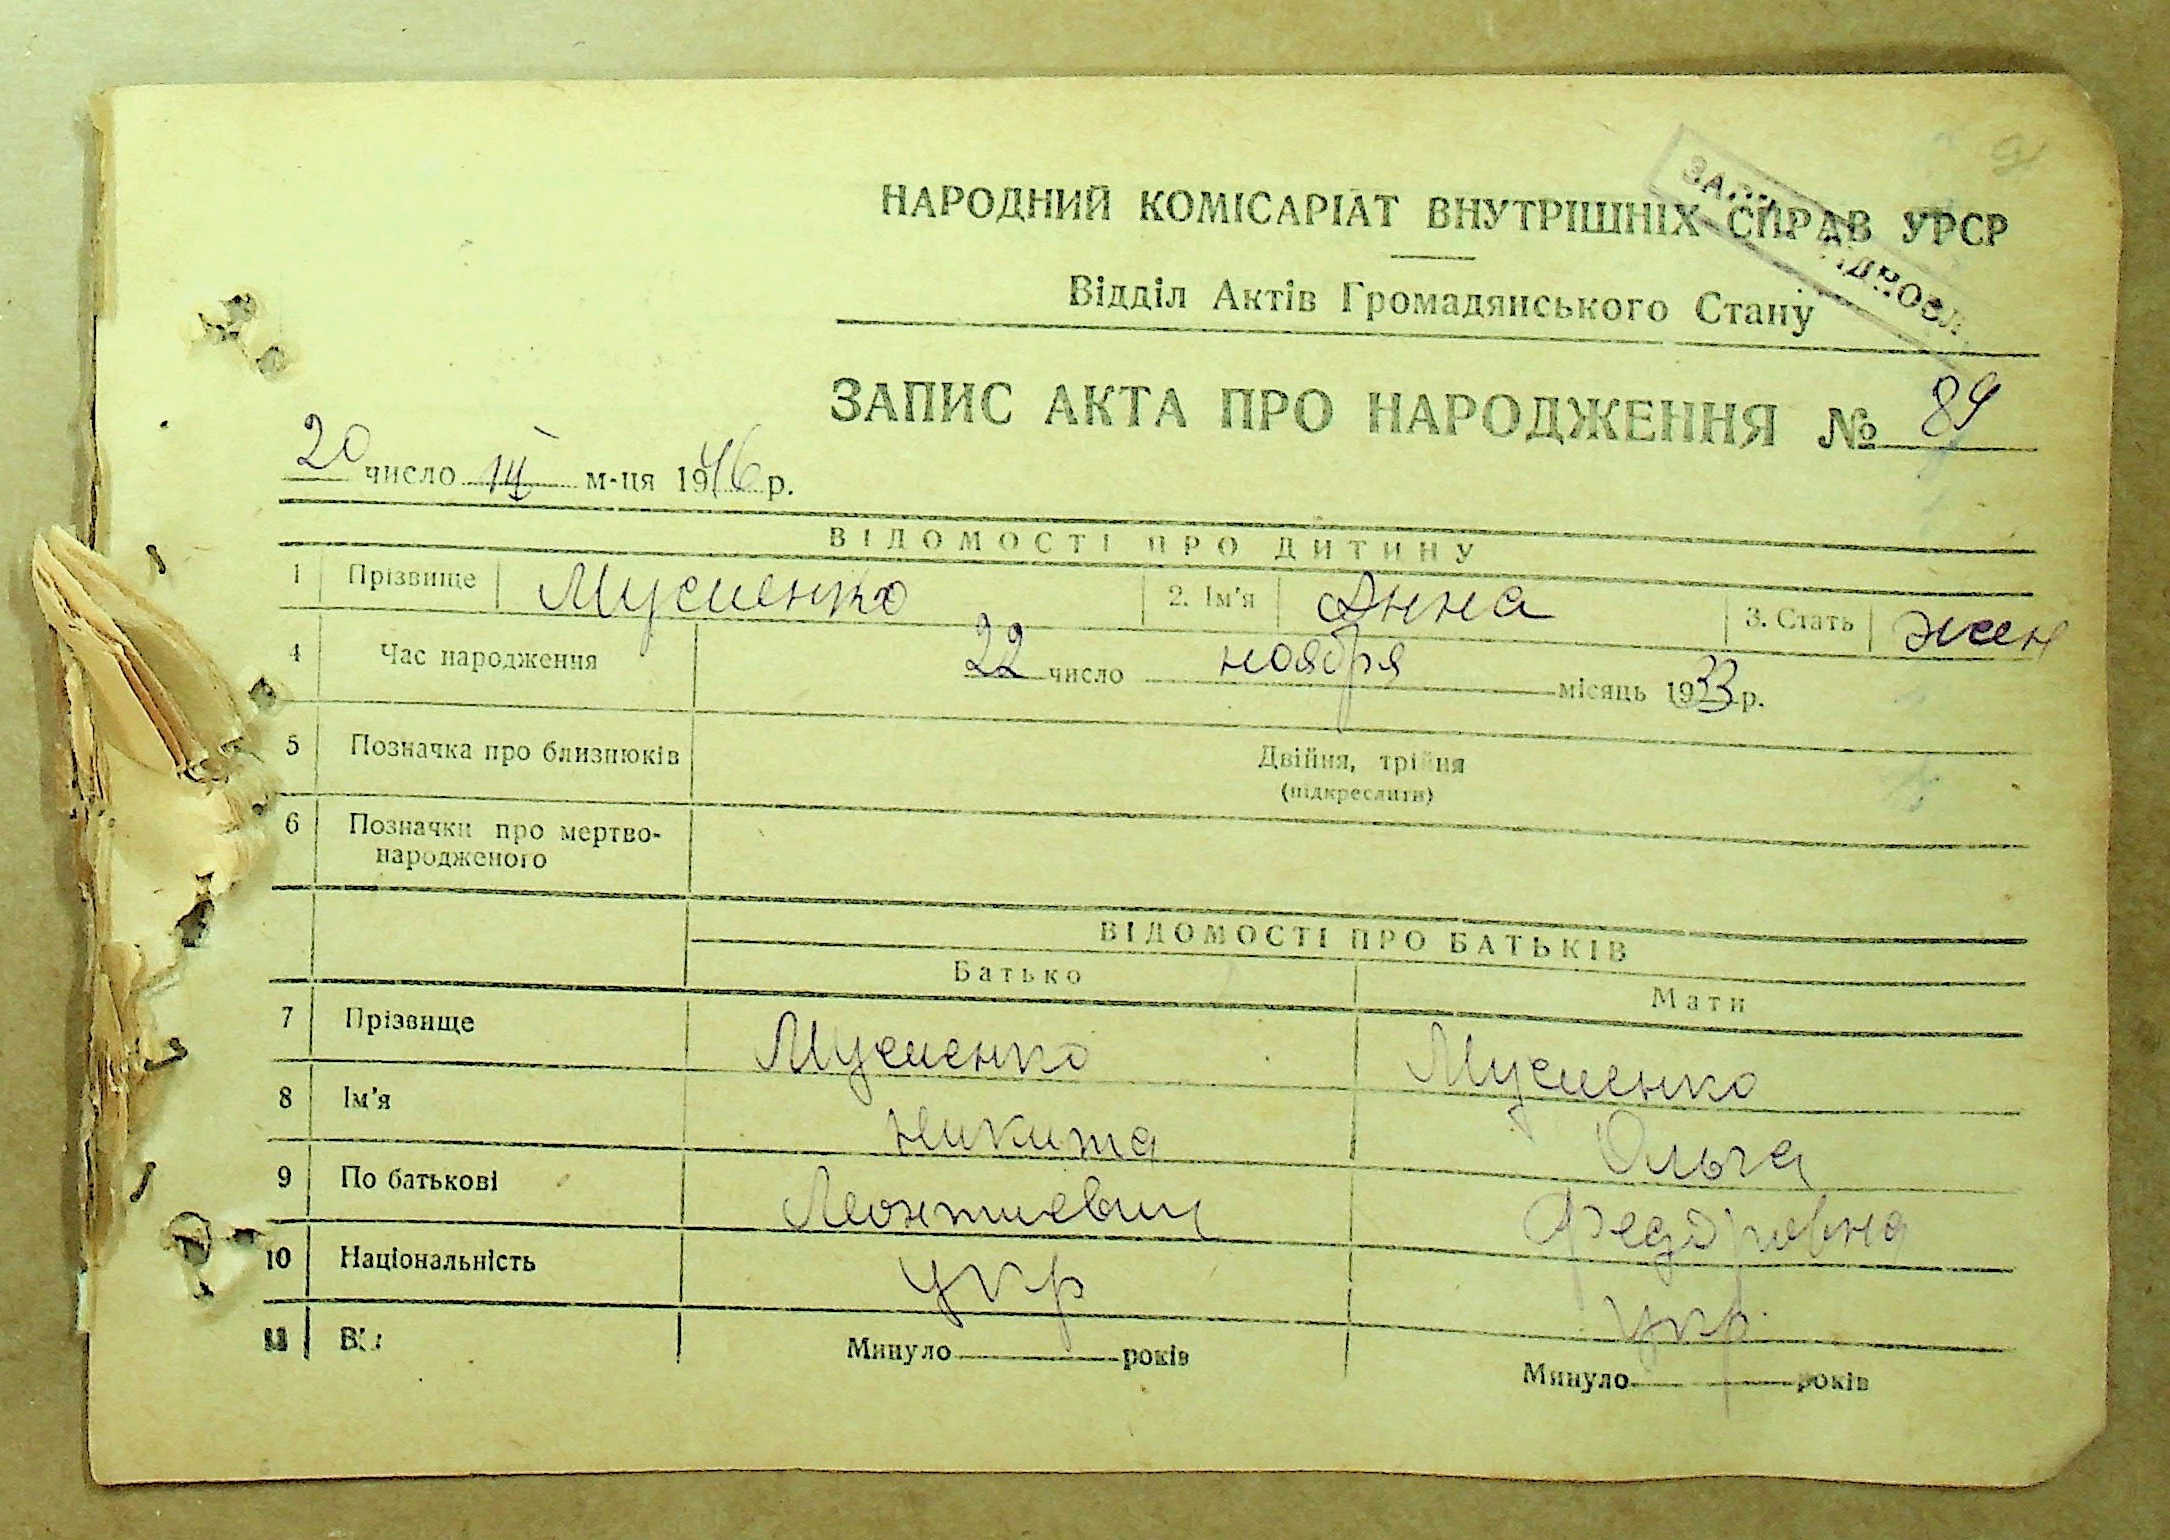 НАРОДНИЙ КОМІСАРІАТ ВНУТРІШНІХ СПРАВ УРСР
Відділ Актів Громадянського Стану
ЗАПИС АКТА ПРО НАРОДЖЕННЯ № 89
20 число м-ця 1946 р.
ВІДОМОСТІ ПРО ДИТИНУ
1 Прізвище Мусиенко 2. Ім'я Анна 3. Стать жен
4 Час народження 22 число ноября місяць 1933 р.
5 Позначка про близнюків Двійня, трійня
(підкреслити)
6 Позначки про мертво-
народженого
ВІДОМОСТІ ПРО БАТЬКІВ
Батько Мати
7 Прізвище Мусиенко Мусиенко
8 Ім'я Никита Ольга
9 По батькові Леонтиевич Федоровна
10 Національність укр укр
11 Минуло років Минуло років